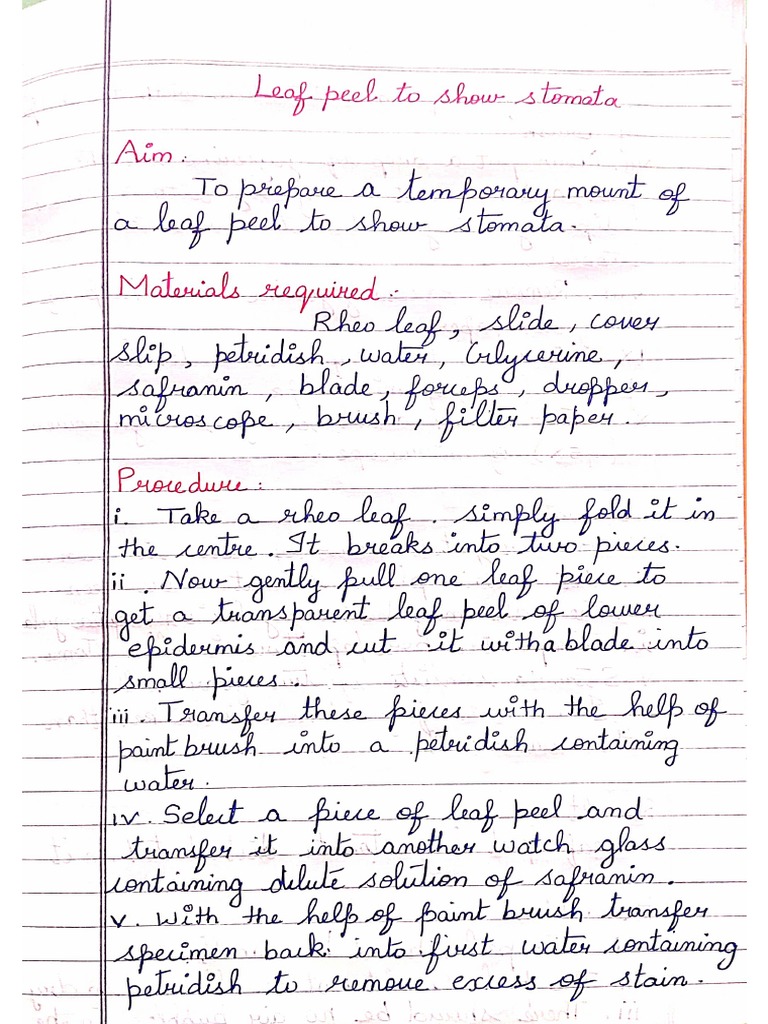 Leaf peel to show stomata
Aim:
To prepare a temporary mount of
a leaf peel to show stomata.
Materials required:
Rheo leaf, slide, cover
slip, petridish, water, Glycerine,
safranin, blade, forceps, dropper,
microscope, brush, filter paper.
Procedure:
i. Take a rheo leaf. simply fold it in
the centre. It breaks into two pieces.
ii. Now gently pull one leaf piece to
get a transparent leaf peel of lower
epidermis and cut it with a blade into
small pieces.
iii. Transfer these pieces with the help of
paint brush into a petridish containing
water.
iv. Select a piece of leaf peel and
transfer it into another watch glass
containing dilute solution of safranin.
v. With the help of paint brush transfer
specimen back into first water containing
petridish to remove excess of stain.